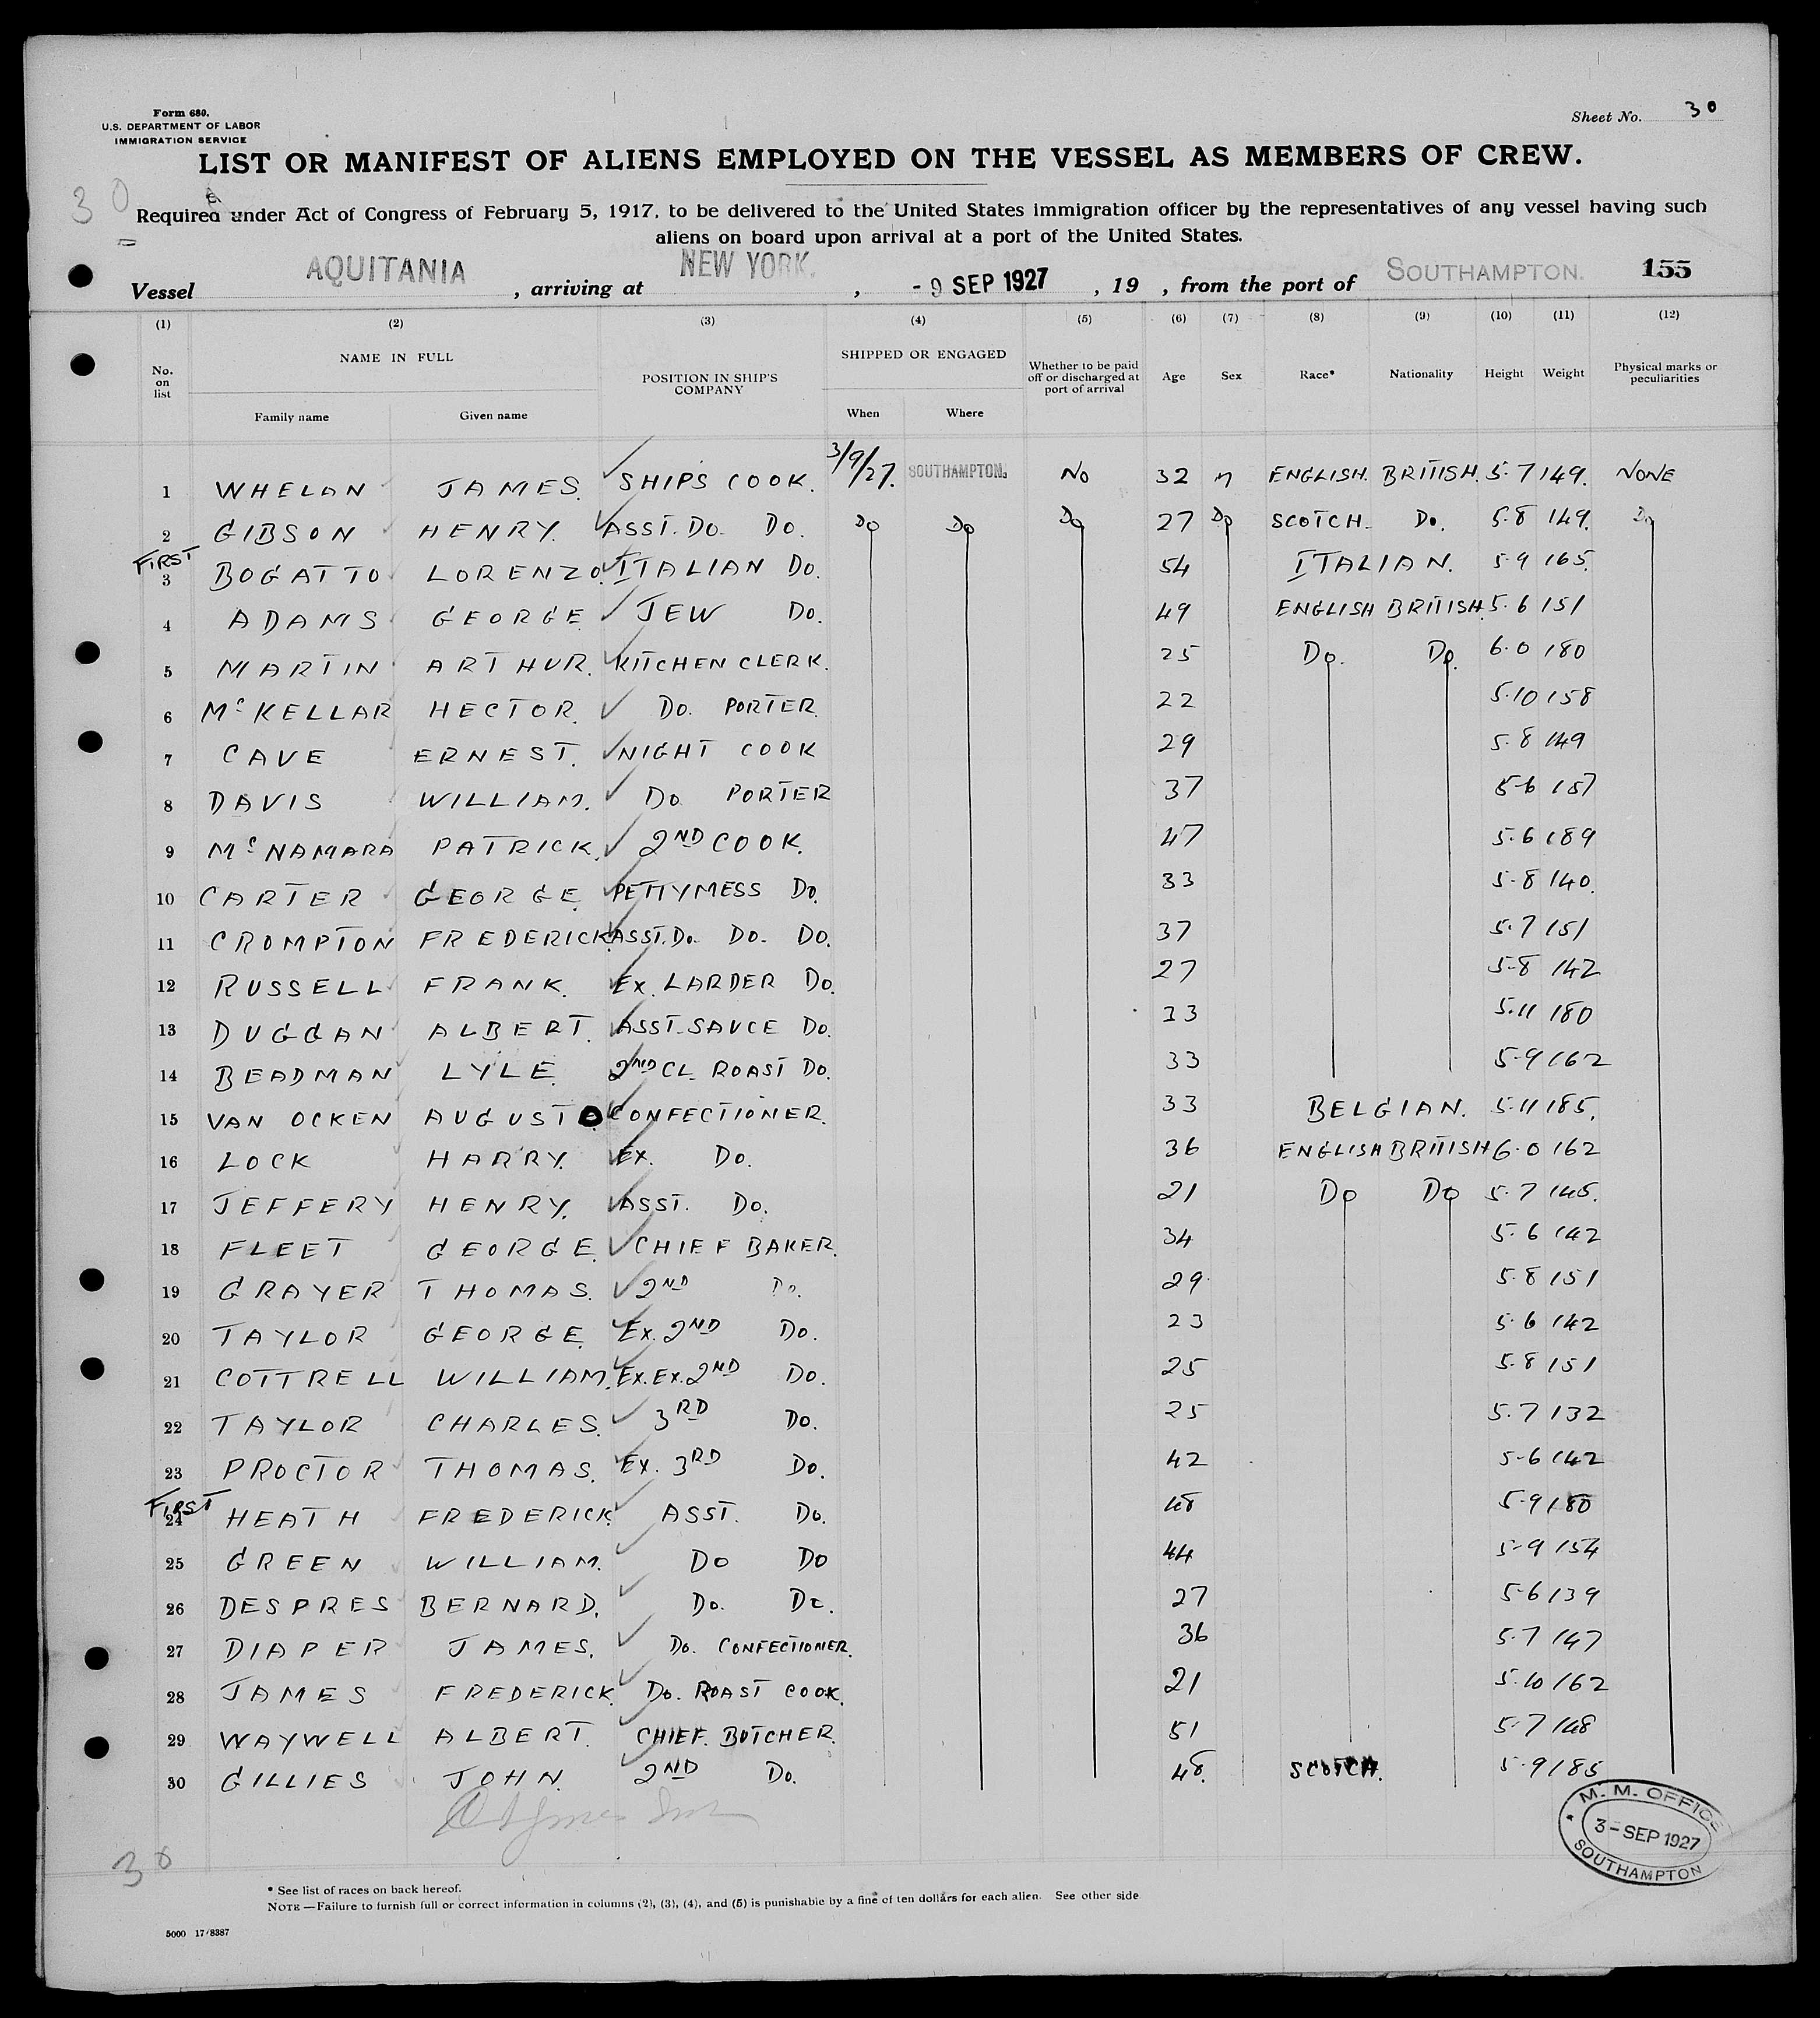 Form 680.
U.S. DEPARTMENT OF LABOR
IMMIGRATION SERVICE
Sheet No. 30
LIST OR MANIFEST OF ALIENS EMPLOYED ON THE VESSEL AS MEMBERS OF CREW.
30
Required under Act of Congress of February 5, 1917, to be delivered to the United States immigration officer by the representatives of any vessel having such
aliens on board upon arrival at a port of the United States.
Vessel AQUITANIA, arriving at NEW YORK, - 9 SEP 1927, 19 , from the port of SOUTHAMPTON. 155
(1) (2) (3) (4) (5) (6) (7) (8) (9) (10) (11) (12)
No. on list NAME IN FULL Family name Given name POSITION IN SHIP'S COMPANY SHIPPED OR ENGAGED When Where Whether to be paid off or discharged at port of arrival Age Sex Race* Nationality Height Weight Physical marks or peculiarities
1 WHELAN JAMES. SHIPS COOK. 3/9/27. SOUTHAMPTON. No 32 M ENGLISH. BRITISH. 5.7 149. NONE
2 GIBSON HENRY. ASST. Do. Do. Do Do Do 27 Do SCOTCH. Do. 5.8 149. Do
FIRST
3 BOGATTO LORENZO. ITALIAN Do. 54 ITALIAN. 5.9 165.
4 ADAMS GEORGE JEW Do. 49 ENGLISH BRITISH. 5.6 151
5 MARTIN ARTHUR. KITCHEN CLERK. 25 Do. Do. 6.0 180
6 McKELLAR HECTOR. Do. PORTER. 22 5.10 158
7 CAVE ERNEST. NIGHT COOK 29 5.8 149
8 DAVIS WILLIAM. Do PORTER 37 5-6 157
9 McNAMARA PATRICK. 2ND COOK. 47 5.6 189
10 CARTER GEORGE. PETTYMESS Do. 33 5-8 140.
11 CROMPTON FREDERICK. ASST. Do. Do. Do. 37 5.7 151
12 RUSSELL FRANK. Ex. LARDER Do. 27 5-8 142
13 DUGGAN ALBERT. ASST. SAUCE Do. 33 5.11 180
14 BEADMAN LYLE. 2ND CL. ROAST Do. 33 5-9 162
15 VAN OCKEN AUGUSTO CONFECTIONER. 33 BELGIAN. 5.11 185.
16 LOCK HARRY. Ex. Do. 36 ENGLISH BRITISH 6.0 162
17 JEFFERY HENRY. ASST. Do. 21 Do Do 5.7 145.
18 FLEET GEORGE. CHIEF BAKER. 34 5.6 142
19 GRAYER THOMAS. 2ND Do. 29 5.8 151
20 TAYLOR GEORGE. Ex. 2ND Do. 23 5.6 142
21 COTTRELL WILLIAM. Ex. Ex. 2ND Do. 25 5.8 151
22 TAYLOR CHARLES. 3RD Do. 25 5.7 132
23 PROCTOR THOMAS. Ex. 3RD Do. 42 5-6 142
FIRST
24 HEATH FREDERICK. ASST. Do. 48 5.9 180
25 GREEN WILLIAM. Do Do 44 5-9 154
26 DESPRES BERNARD. Do. Do. 27 5-6 139
27 DIAPER JAMES. Do. CONFECTIONER. 36 5.7 147
28 JAMES FREDERICK. Do. ROAST COOK. 21 5.10 162
29 WAYWELL ALBERT. CHIEF. BUTCHER. 51 5.7 148
30 GILLIES JOHN. 2ND Do. 48. SCOTCH. 5.9 185
M. M. OFFICE
3 - SEP 1927
SOUTHAMPTON
30
* See list of races on back hereof.
NOTE —Failure to furnish full or correct information in columns (2), (3), (4), and (5) is punishable by a fine of ten dollars for each alien. See other side
5000 17/8387